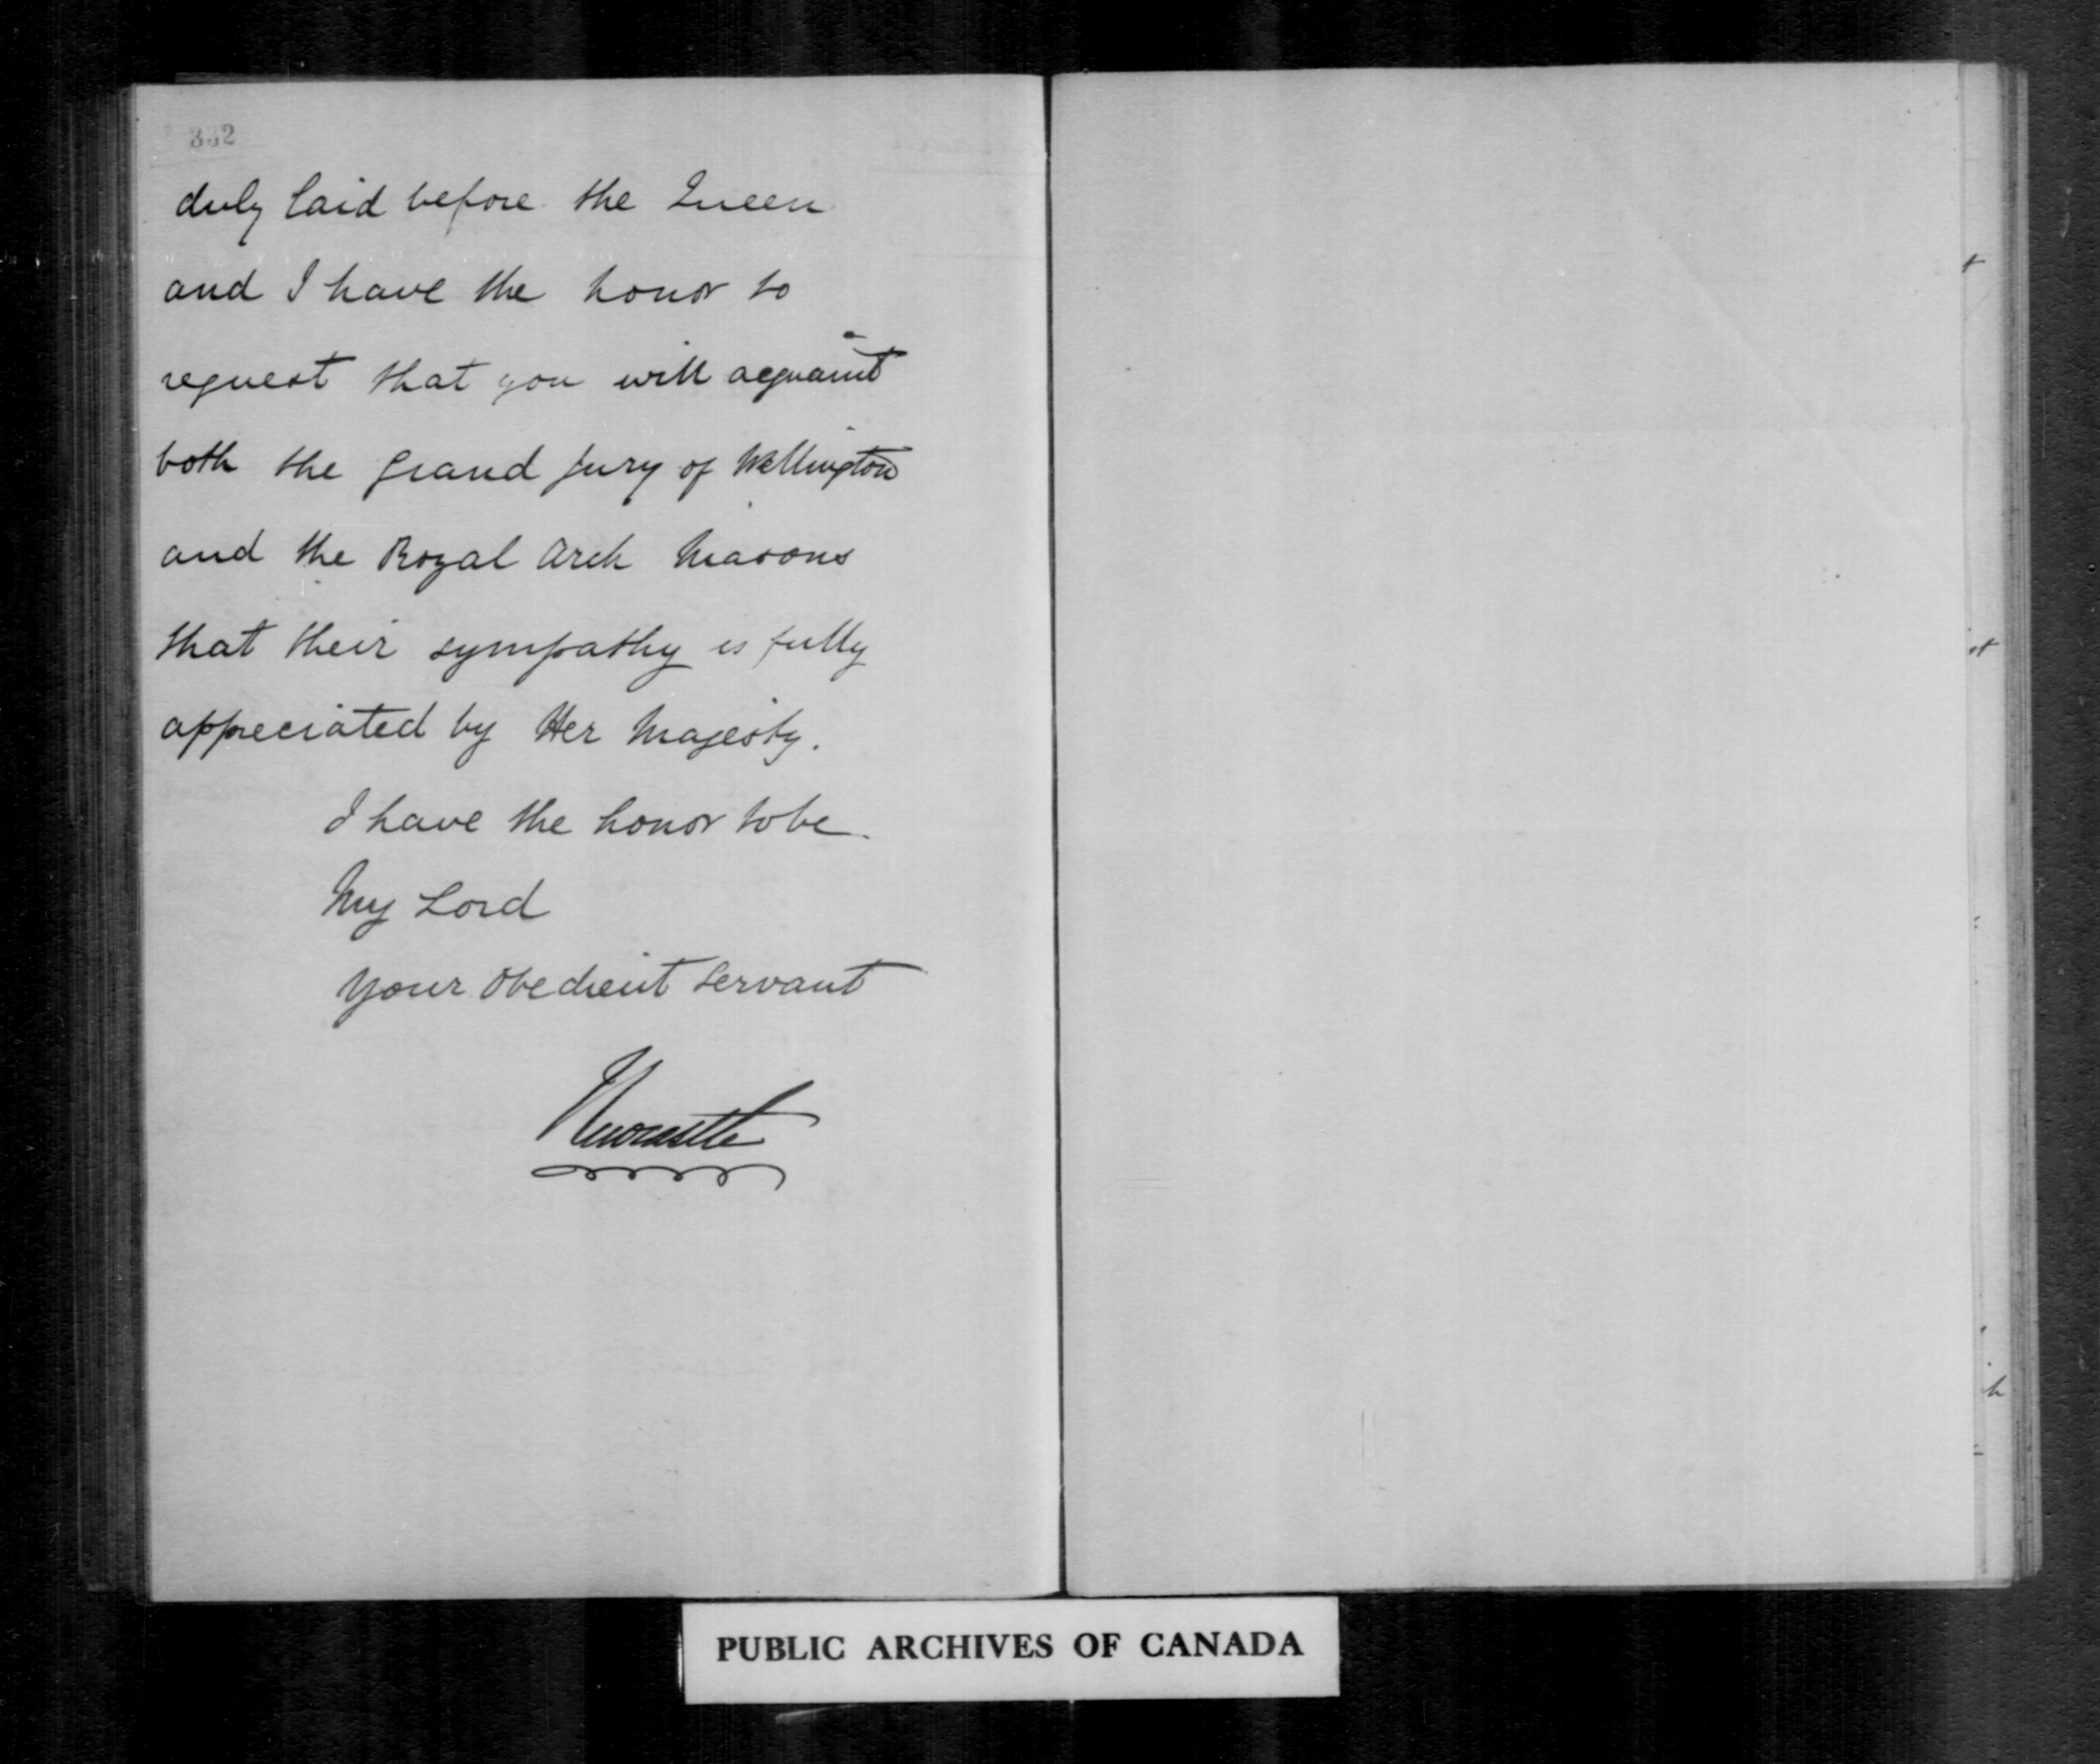 332
duly laid before the Queen
and I have the honor to
request that you will acquaint
both the Grand Jury of Wellington
and the Royal Arch Masons
that their sympathy is fully
appreciated by Her Majesty.
I have the honor to be
My Lord
Your Obedient Servant
Newcastle
PUBLIC ARCHIVES OF CANADA